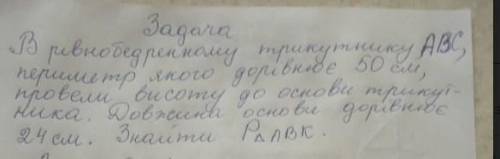 Задача
В рівнобедренному трикутнику АВС,
периметр якого дорівнює 50 см,
провели висоту до основи трикут-
ника. Довжина основи дорівнює
24 см. Знайти Р∆АВК.